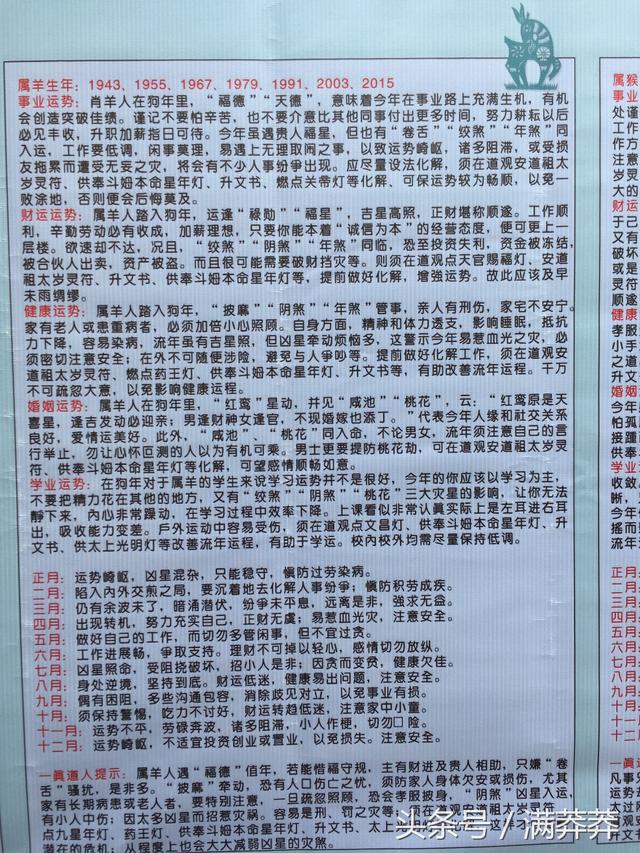 属羊生年：1943、1955、1967、1979、1991、2003、2015
事业运势：肖羊人在狗年里，“福德”“天德”，意味着今年在事业路上充满生机，有机
会创造突破佳绩。谨记不要怕辛苦，也不要介意比其他同事付出更多时间，努力耕耘以后
必见丰收，升职加薪指日可待。今年虽遇贵人福星，但也有“卷舌”“绞煞”“年煞”同
入运，工作要低调，闲事莫理，易遇上无理取闹之事，以致运势崎岖，诸多阻滞，或受损
友拖累而遭受无妄之灾，将会有不少人事纷争出现。应尽量设法化解，须在道观安道祖太
岁灵符、供奉斗姆本命星年灯、升文书、燃点关帝灯等化解、可保运势较为畅顺，以免一
败涂地，否则便会后悔莫及。
财运运势：属羊人踏入狗年，运逢“禄勋”“福星”，吉星高照，正财堪称顺遂。工作顺
利，辛勤劳动必有收成，加薪理想，只要你能本着“诚信为本”的经营态度，便可更上一
层楼。欲速却不达，况且，“绞煞”“阴煞”“年煞”同临，恐至投资失利，资金被冻结，
被合伙人出卖，资产被盗。而且很可能需要破财挡灾等。则须在道观点天官赐福灯、安道
祖太岁灵符、升文书、供奉斗姆本命星年灯等，提前做好化解，增强运势。故此应该及早
未雨绸缪。
健康运势：属羊人踏入狗年，“披麻”“阴煞”“年煞”管事，亲人有刑伤，家宅不安宁。
家有老人或患重病者，必须加倍小心照顾。自身方面，精神和体力透支，影响睡眠，抵抗
力下降，容易染病，流年虽有吉星照，但凶星牵动烦恼多，这警示今年易惹血光之灾，必
须密切注意安全；在外不可随便涉险，避免与人争吵等。提前做好化解工作，须在道观安
道祖太岁灵符、燃点药王灯、供奉斗姆本命星年灯、升文书等，有助改善流年运程。千万
不可疏忽大意，以免影响健康运程。
婚姻运势：属羊人在狗年里，“红鸾”星动，并见“咸池”“桃花”，云：“红鸾原是天
喜星，逢吉发动必迎亲；男逢财神女逢官，不现婚嫁也添丁。”代表今年人缘和社交关系
良好，爱情运美好。此外，“咸池”、“桃花”同入命，不论男女，流年须注意自己的言
行举止，勿让心怀叵测的人以为有机可乘。男士更要提防桃花劫，可在道观安道祖太岁灵
符、供奉斗姆本命星年灯等化解，可望感情顺畅如意。
学业运势：在狗年对于属羊的学生来说学习运势并不是很好，今年的你应该以学习为主，
不要把精力花在其他的地方，又有“绞煞”“阴煞”“桃花”三大灾星的影响，让你无法
静下来，内心非常躁动，在学习过程中效率下降。上课看似非常认真实际上是左耳进右耳
出，吸收能力变差。户外运动中容易受伤，须在道观点文昌灯、供奉斗姆本命星年灯、升
文书、供太上光明灯等改善流年运程，有助于学运。校内校外均需尽量保持低调。
正月：运势崎岖，凶星混杂，只能稳守，慎防过劳染病。
二月：陷入内外交煎之局，要沉着地去化解人事纷争；慎防积劳成疾。
三月：仍有余波未了，暗涌潜伏，纷争未平息，远离是非，强求无益。
四月：出现转机，努力充实自己，正财无虞；易惹血光灾，注意安全。
五月：做好自己的工作，而切勿多管闲事，但不宜过贪。
六月：工作进展畅，争取支持。理财不可掉以轻心，感情切勿放纵。
七月：凶星照命，受阻挠破坏，招小人是非；因贪而变贫，健康欠佳。
八月：身处逆境，坚持到底。财运低迷，健康易出问题，注意安全。
九月：偶有困阻，多些沟通包容，消除歧见对立，以免事业有损。
十月：须保持警惕，吃力不讨好，财运转趋低迷，注意家中小童。
十一月：运势不平，劳碌奔波，诸多阻滞，小人作梗，切勿□险。
十二月：运势崎岖，不适宜投资创业或置业，以免损失。注意安全。
一真道人提示：属羊人遇“福德”值年，若能惜福守规，主有财进及贵人相助，只嫌“卷
舌”骚扰，是非多。“披麻”牵动，恐有人口伤亡之忧，须防家人身体欠安或损伤，尤其
家有长期病患或老人者，要特别注意，一旦疏忽照顾，恐会孝服披身，“阴煞”凶星入运，
有小人中伤；因太多凶星而招惹灾祸。容易是刑、罚之灾等；可在道观安道祖太岁灵符、
点九星年灯、药王灯、供奉斗姆本命星年灯、升文书
潜在的危机；从程度上也会大大减弱凶星的灾煞。
头条号／满莽莽